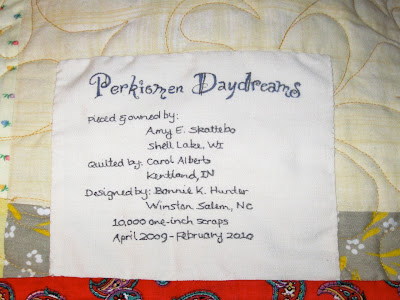 Perkiomen Daydreams
Pieced & owned by:
Amy E. Skattebo
Shell Lake, WI
Quilted by: Carol Alberts
Kentland, IN
Designed by: Bonnie K. Hunter
Winston Salem, NC
10,000 one-inch scraps
April 2009-February 2010